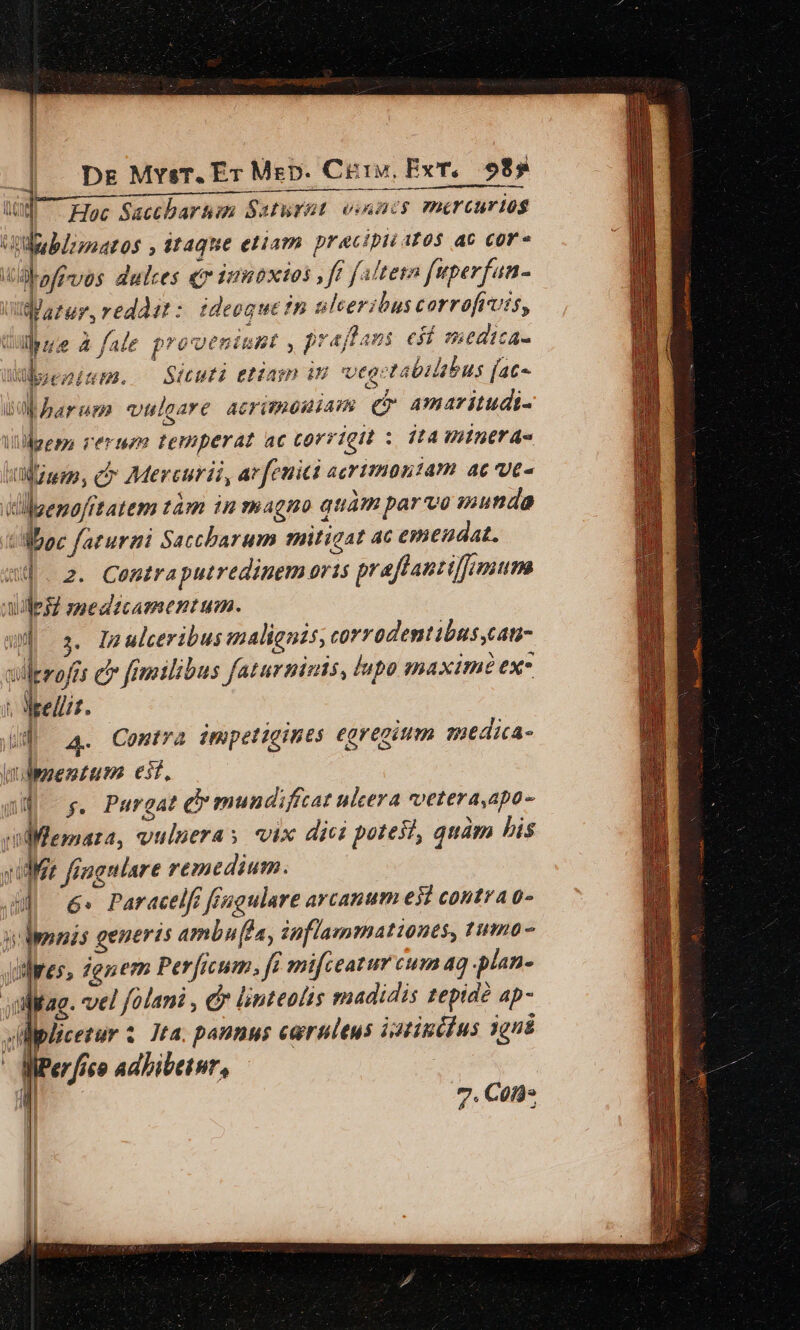 De Myst. Et Med. Chim. Ext. 985
Hoc Saccharum Saturni omnes mercurios
sublimatos, itaque etiam præcipitatos ac cor-
rosivos dulces & innoxios, si saltem superfun-
datur, reddit: ideoque in ulceribus corrosivis,
quæ à sale proveniunt, præstans est medica-
mentum. Sicuti etiam in vegetabilibus sac-
charum vulgare acrimoniam & amaritudi-
nem rerum temperat ac corrigit: ita minera-
lium, & Mercurii, arsenici acrimoniam ac ve-
nenositatem tàm in magno quàm parvo mundo
hoc saturni Saccharum mitigat ac emendat.
2. Contra putredinem oris præstantissimum
est medicamentum.
3. In ulceribus malignis, corrodentibus, can-
crosis & similibus saturninis, lupo maximè ex-
cellit.
4. Contra impetigines egregium medica-
mentum est.
5. Purgat & mundificat ulcera vetera, apo-
stemata, vulnera; vix dici potest, quàm his
sit singulare remedium.
6. Paracelsi singulare arcanum est contra o-
mnis generis ambusta, inflammationes, tumo-
res, ignem Persicum, si misceatur cum aq. plan-
tag. vel solani, & linteolis madidis tepidè ap-
plicetur: Ita pannus cæruleus intinctus igni
Persico adhibetur,
7. Con-